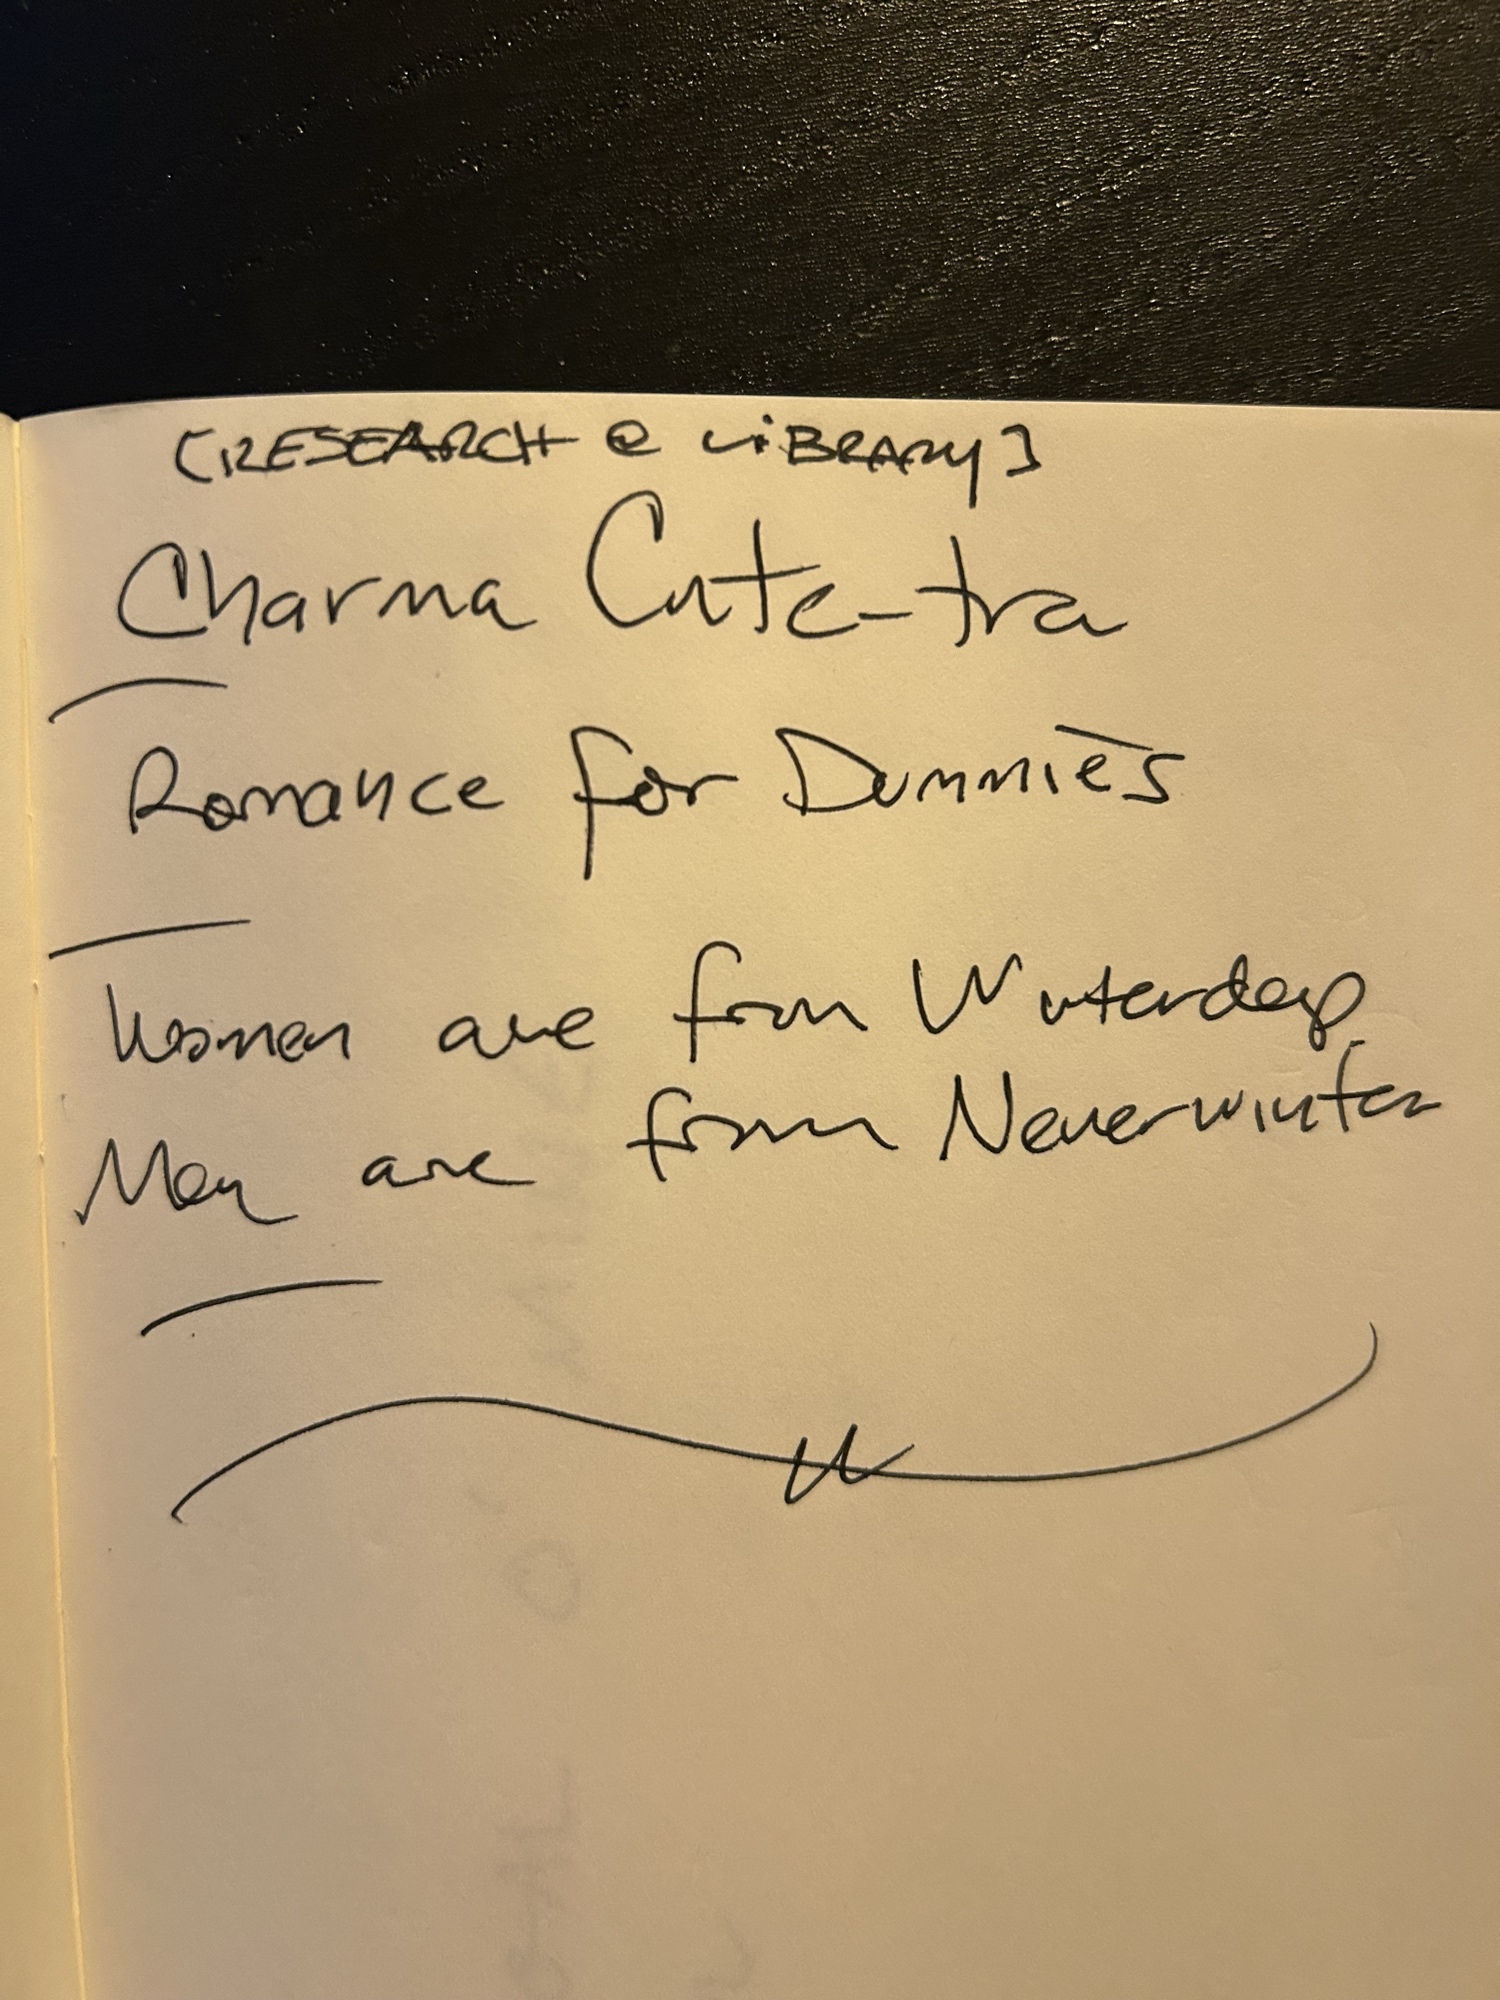 [RESEARCH @ LIBRARY]
Charma Cute-tra
Romance for Dummies
Women are from Waterdeep
Men are from Neverwinter